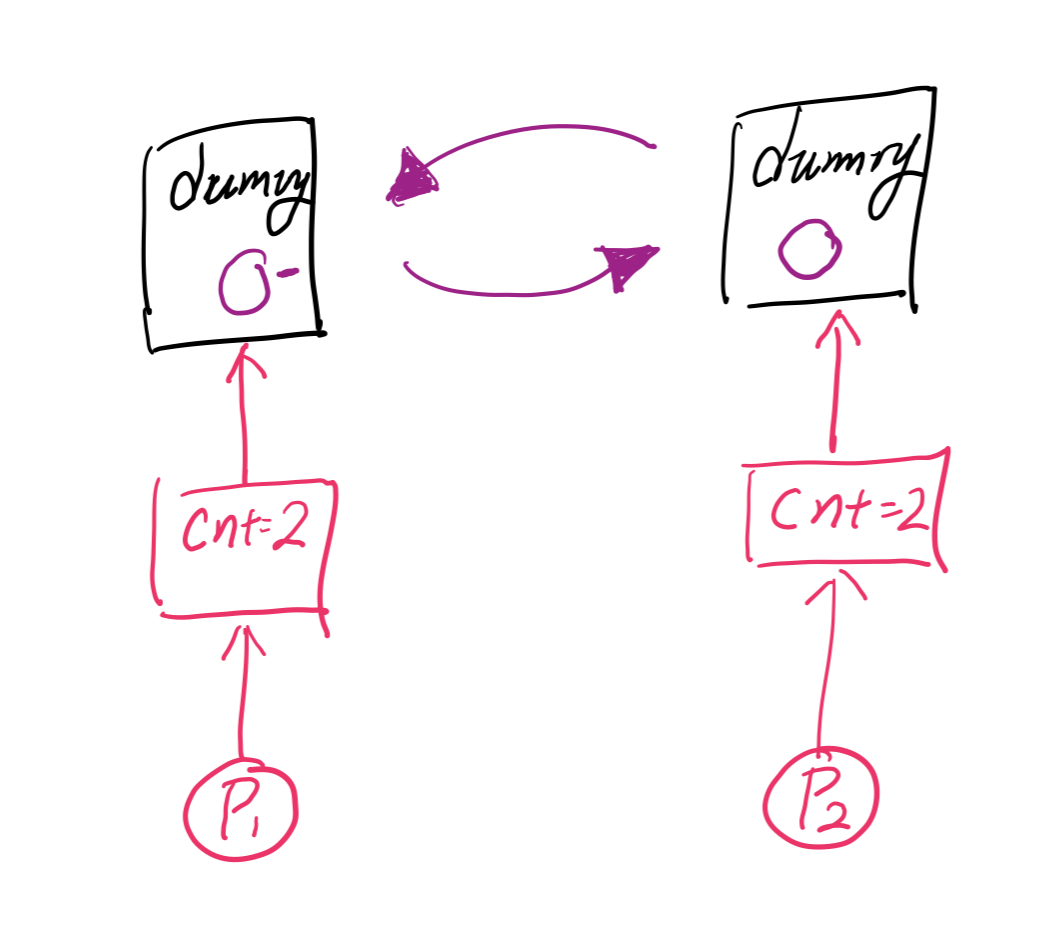 dummy
dummy
cnt=2
cnt=2
P1
P2